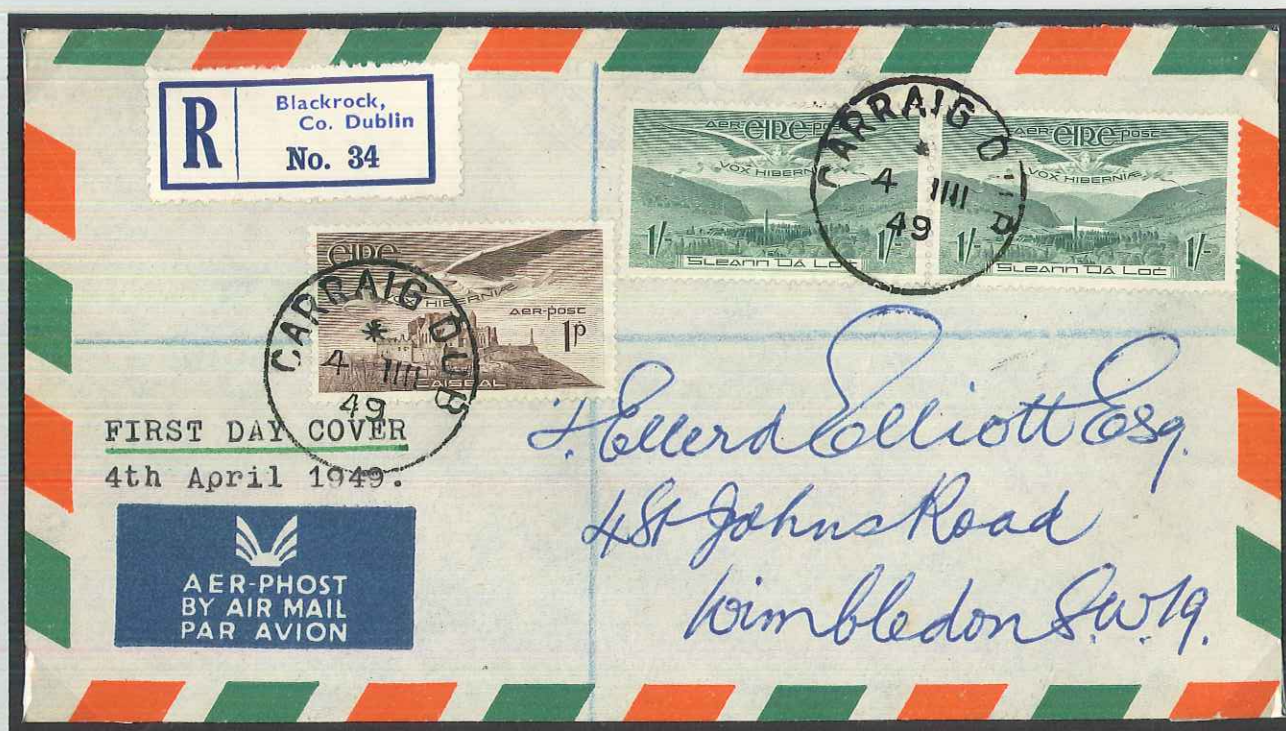 R
Blackrock,
Co. Dublin
No. 34
AER ÉIRE POST
VOX HIBERNIÆ
1/- 1/-
GLEANN DÁ LOĊ
AER ÉIRE POST
VOX HIBERNIÆ
1/- 1/-
GLEANN DÁ LOĊ
CARRAIG DUB
4 IIII
49
ÉIRE
VOX HIBERNIÆ
AER-POST
1p
CAISEAL
CARRAIG DUB
4 IIII
49
FIRST DAY COVER
4th April 1949.
AER-PHOST
BY AIR MAIL
PAR AVION
Ellerd Elliott Esq.
4 St Johns Road
Wimbledon S.W.19.